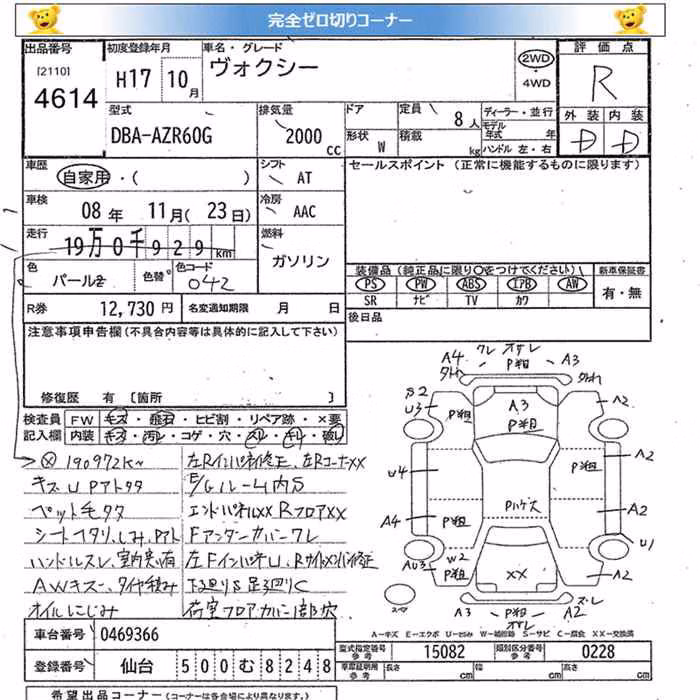 完全ゼロ切りコーナー
出品番号 初度登録年月 車名・グレード 評価点
[2110] H17 10月 ヴォクシー 2WD 4WD R
4614
型式 排気量 ドア 定員 8人 ディーラー・並行 外装 内装
DBA-AZR60G 2000cc 形状 W 積載 kg モデル年式 年 ハンドル 左・右 D D
車歴 自家用・( ) シフト AT セールスポイント (正常に機能するものに限ります)
車検 08年 11月(23日) 冷房 AAC
走行 19万0千929km 燃料 ガソリン
色 パール2 色替 色コード 042
装備品(純正品に限り○をつけてください) 新車保証書
PS PW ABS エアB AW 有・無
SR ナビ TV カワ
R券 12,730円 名変通知期限 月 日 後日品
注意事項申告欄(不具合内容等は具体的に記入して下さい)
修復歴 有 [箇所 ]
検査員 FW キズ・飛石・ヒビ割・リペア跡・×要
記入欄 内装 キズ・汚レ・コゲ・穴・スレ・キレ・破レ
190972K~ 左Rインパネ修正、左RコーナーXX
キズUPアトタタ E/Gルーム内S
ペット毛タタ エンドパネルXX RフロアXX
シートヘタリ、しみ、Pアト Fアンダーカバーワレ
ハンドルスレ、 左FインパネU、
AWキズー、タイヤ積み 下廻りS足廻りC
オイルにじみ 荷室フロアカバー一部穴
A4 ワレ オサレ A3
P粗
S2 U3 P粗 A3 P粗 P粗 A2
U4 P粗 A2
A4 P粗 Pハゲズ A2
U1
AU3 W2 P粗 XX P粗 A2
A3 P粗 A2
スマ
A-キズ E-エクボ U-凹み W-補修跡 S-サビ C-腐食 XX-交換済
車台番号 0469366
登録番号 仙台 500む8248
型式指定番号 参考 15082 類別区分番号 参考 0228
車庫証明用 参考 長さ cm 幅 cm 高さ cm
希望出品コーナー (コーナーは各会場により異なります。)